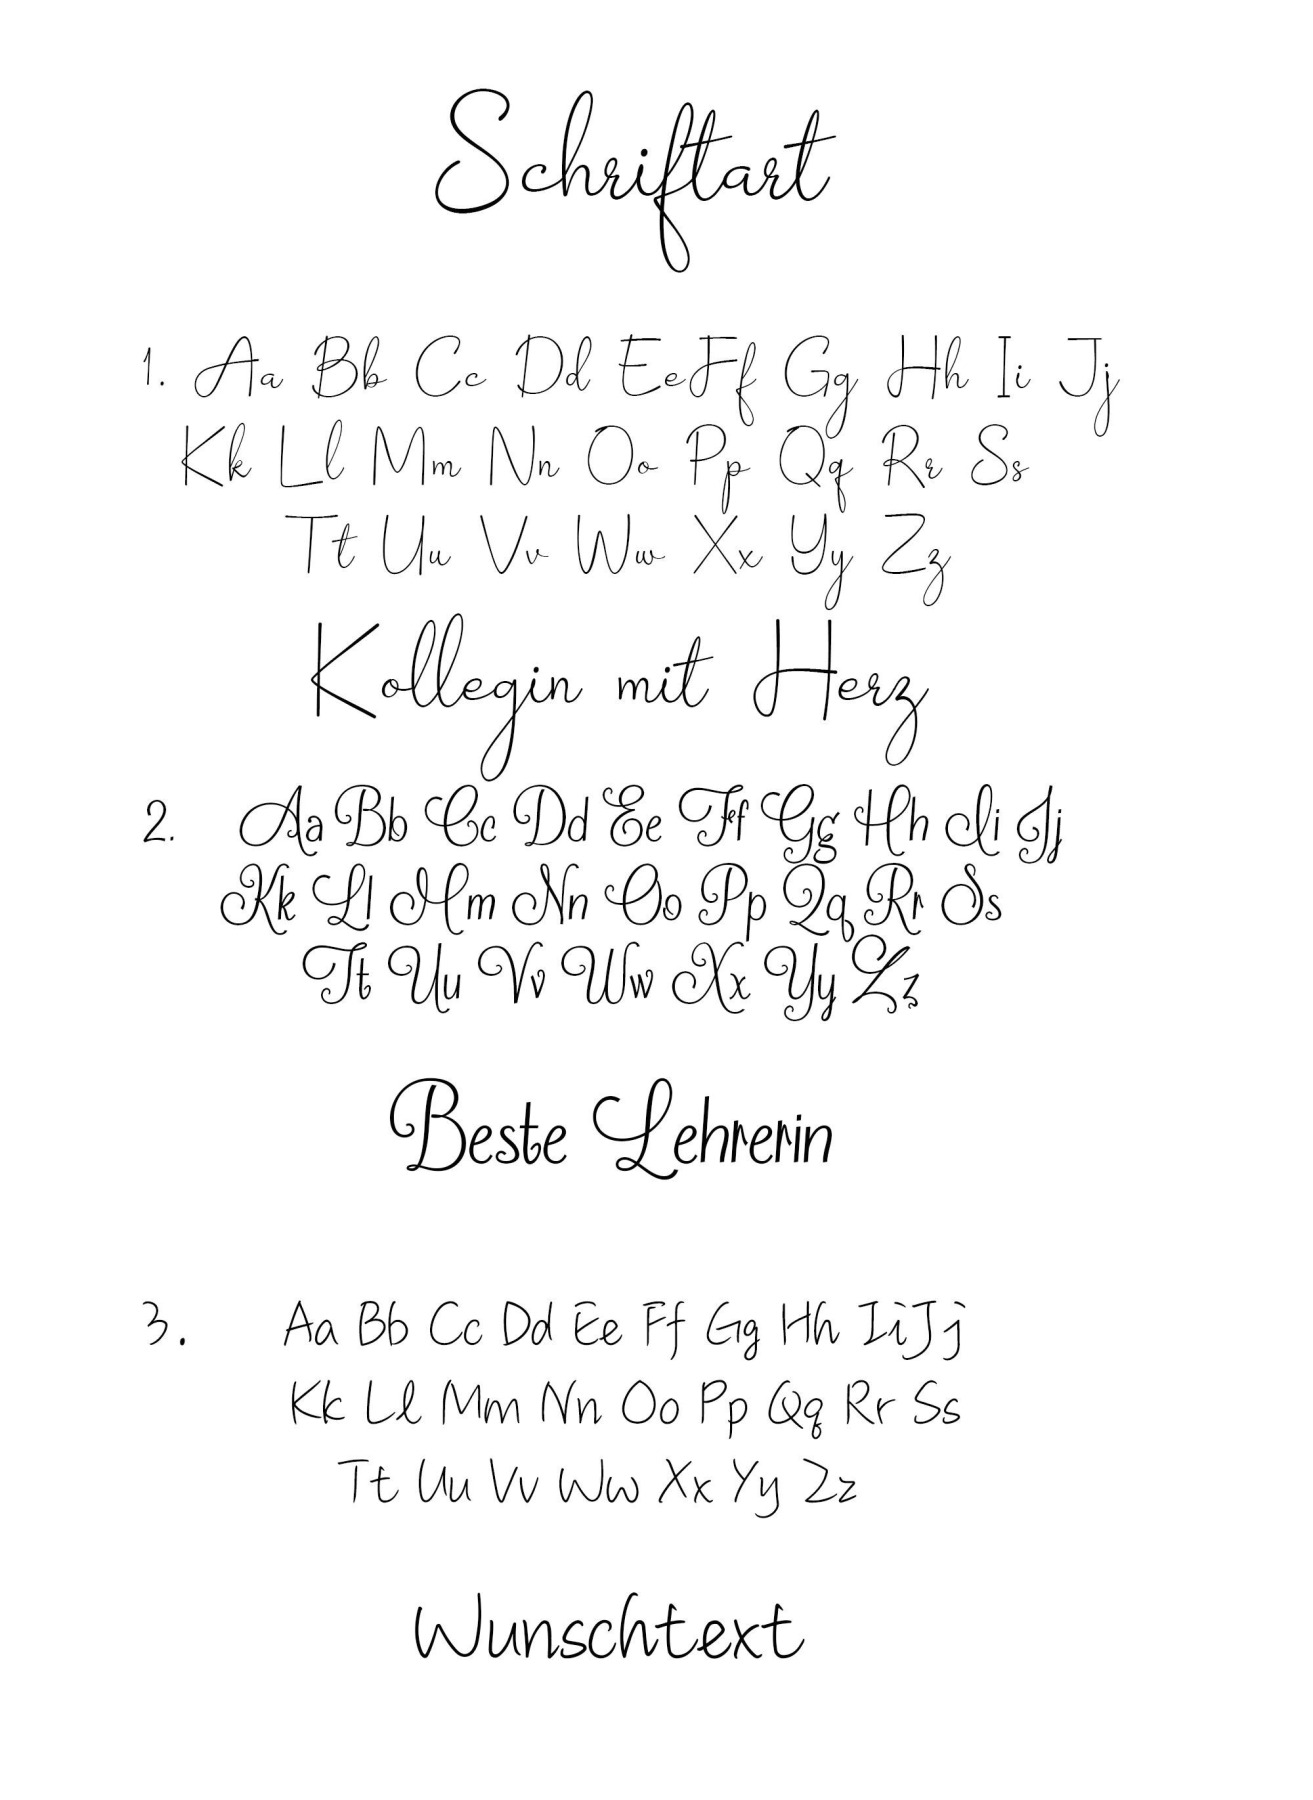 Schriftart
1. Aa Bb Cc Dd Ee Ff Gg Hh Ii Jj
Kk Ll Mm Nn Oo Pp Qq Rr Ss
Tt Uu Vv Ww Xx Yy Zz
Kollegin mit Herz
2. Aa Bb Cc Dd Ee Ff Gg Hh Ii Jj
Kk Ll Mm Nn Oo Pp Qq Rr Ss
Tt Uu Vv Ww Xx Yy Zz
Beste Lehrerin
3. Aa Bb Cc Dd Ee Ff Gg Hh Ii Jj
Kk Ll Mm Nn Oo Pp Qq Rr Ss
Tt Uu Vv Ww Xx Yy Zz
Wunschtext